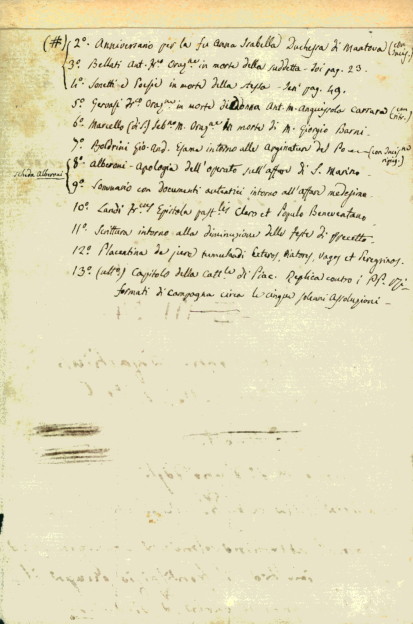 (#) 2º. Anniversario per la fu Anna Isabella Duchessa di Mantova (con incis.)
3º. Bellati Ant. Fr.º Oraz.ne in morte della suddetta - ivi pag. 23.
4º. Sonetti e Poesie in morte della stessa - ivi pag. 49.
5º. Gervasi Fr.º Oraz.ne in morte di Donna Ant. M. Anguissola Carrara (con incis.)
6º. Marcello (di S.) Seb.no M. Oraz.ne in morte di M. Giorgio Barni.
7º. Boldrini Gio. Esame intorno alle Arginature del Po
Scheda Alberoni 8º. Alberoni - Apologia dell'operato sull'affar di S. Marino.
9º. Sommario con documenti autentici intorno all'affare medesimo.
10º. Landi Epistola past.lis Clero et Populo Beneventano.
11º. Scrittura intorno alla diminuzione delle feste di precetto.
12º. Placentina de jure tumulandi Exteros, Viatores, Vagos et Peregrinos.
13º. Capitolo della Catt.le di Piac. Replica contro i PP. Ri-
formati di Campagna circa le cinque solenni Assoluzioni -